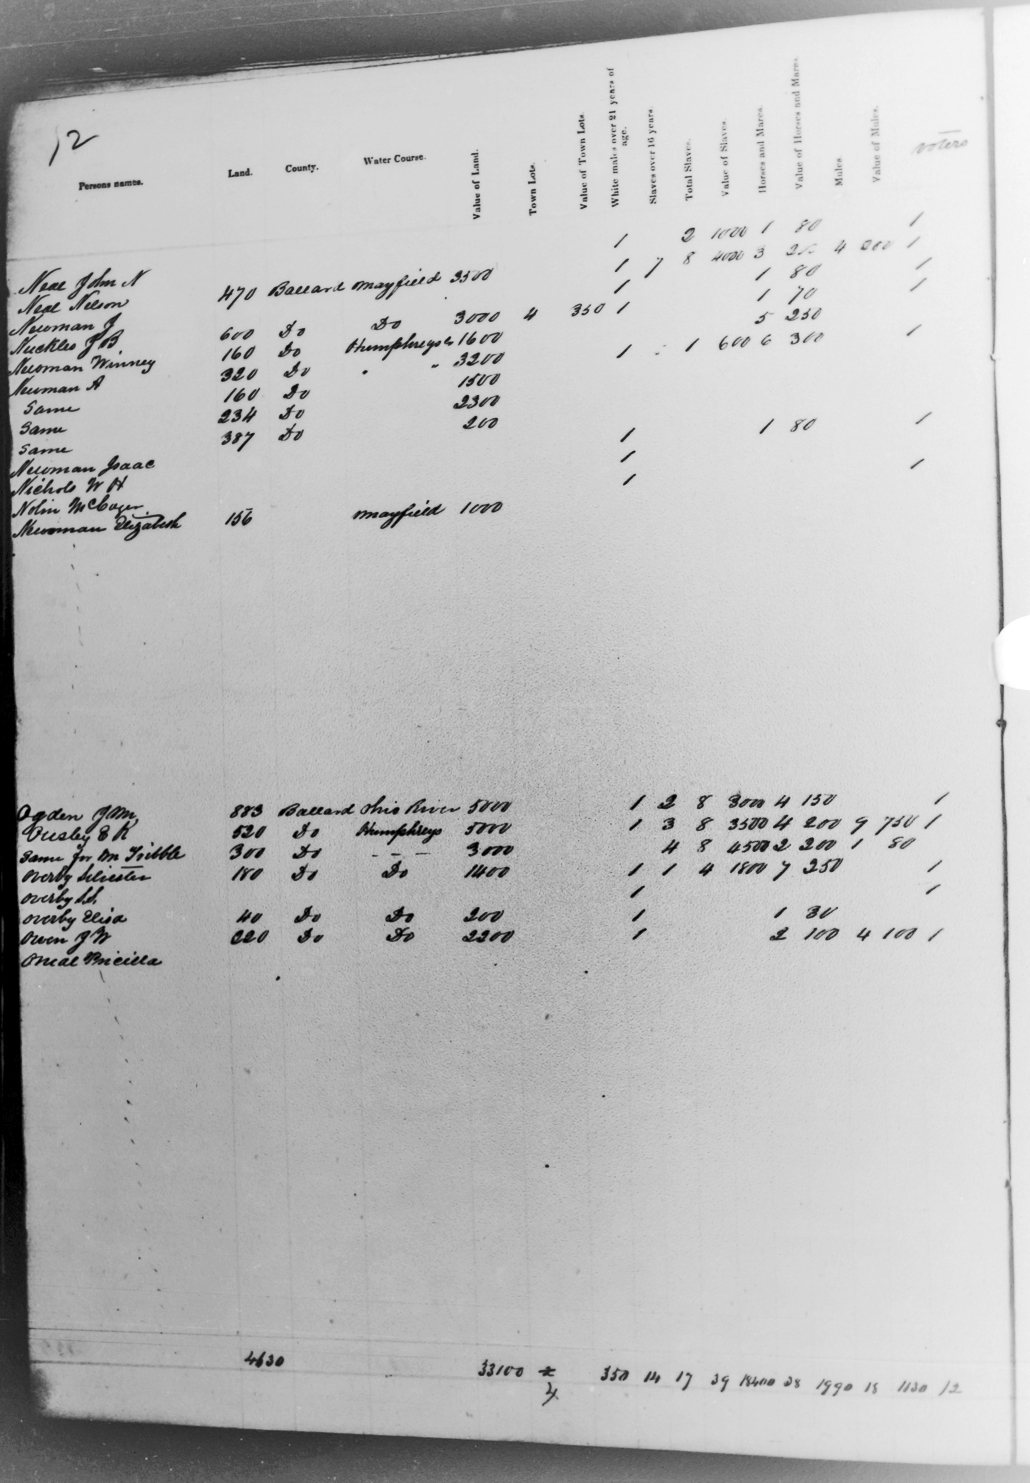 12
Persons names. Land. County. Water Course. Value of Land. Town Lots. Value of Town Lots. White males over 21 years of age. Slaves over 16 years. Total Slaves. Value of Slaves. Horses and Mares. Value of Horses and Mares. Mules Value of Mules. voters
Neal John N 1 2 1000 1 80 1
Neal Nelson 470 Ballard Mayfield 3500 1 7 8 4000 3 200 4 200 1
Newman J 1 1 80 1
Nuckles J B 600 Do Do 3000 4 350 1 1 70 1
Newman Winney 160 Do Humphreys 1600 5 250
Newman A 320 Do " " 3200 1 1 600 6 300 1
Same 160 Do 1500
Same 234 Do 2300
Same 387 Do 200
Newman Isaac 1 1 80 1
Nichols W H 1
Nolin McCager 1 1
Newman Elizabeth 156 Mayfield 1000
Ogden J M 883 Ballard Ohio River 5000 1 2 8 3000 4 150 1
Ousley E K 520 Do Humphreys 5000 1 3 8 3500 4 200 9 750 1
Same for M Tribble 300 Do - - - 3000 4 8 4500 2 200 1 80
Overby Silvester 180 Do Do 1400 1 1 4 1800 7 250 1
Overby 1 1
Overby Elisa 40 Do Do 200 1 1 30
Owen J W 220 Do Do 2200 1 2 100 4 100 1
Oneal Pricilla
4630 33100 4 350 14 17 39 18400 38 1990 18 1130 12